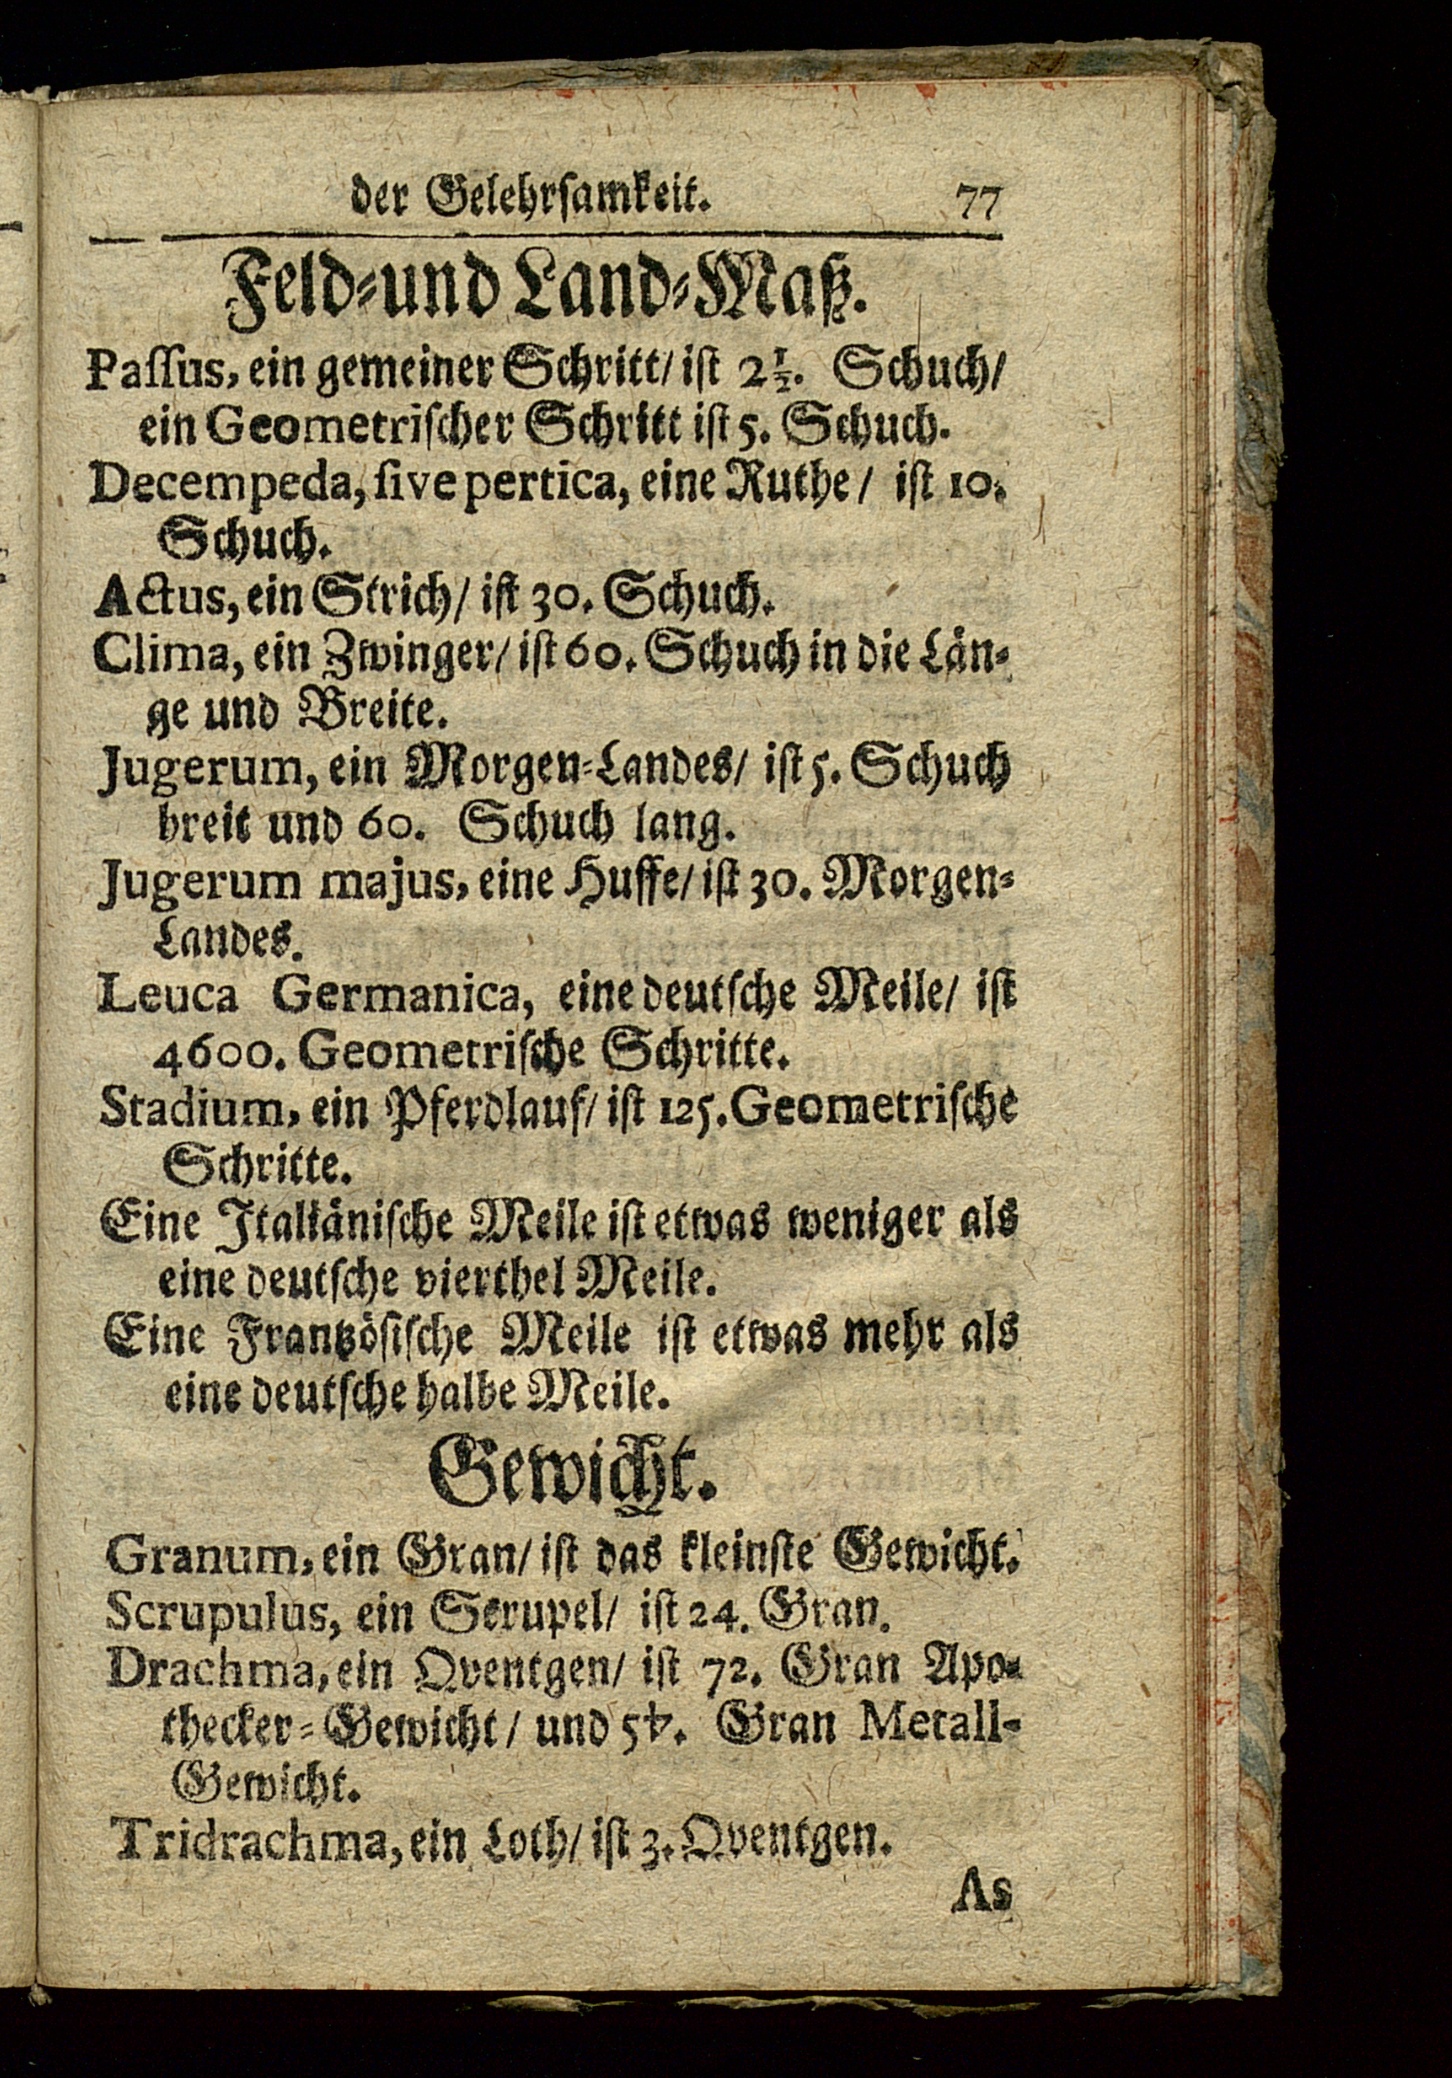 der Gelehrſamkeit. 77
Feld-und Land-Maß.
Paſſus, ein gemeiner Schritt/ iſt 2½. Schuch/
ein Geometriſcher Schritt iſt 5. Schuch.
Decempeda, ſive pertica, eine Ruthe/ iſt 10.
Schuch.
Actus, ein Strich/ iſt 30. Schuch.
Clima, ein Zwinger/ iſt 60. Schuch in die Län-
ge und Breite.
Jugerum, ein Morgen-Landes/ iſt 5. Schuch
breit und 60. Schuch lang.
Jugerum majus, eine Huffe/ iſt 30. Morgen-
Landes.
Leuca Germanica, eine deutſche Meile/ iſt
4600. Geometriſche Schritte.
Stadium, ein Pferdlauf/ iſt 125. Geometriſche
Schritte.
Eine Italiäniſche Meile iſt etwas weniger als
eine deutſche vierthel Meile.
Eine Frantzöſiſche Meile iſt etwas mehr als
eine deutſche halbe Meile.
Gewicht.
Granum, ein Gran/ iſt das kleinſte Gewicht.
Scrupulus, ein Scrupel/ iſt 24. Gran.
Drachma, ein Qventgen/ iſt 72. Gran Apo-
thecker-Gewicht/ und 54. Gran Metall-
Gewicht.
Tridrachma, ein Loth/ iſt 3. Qventgen.
As